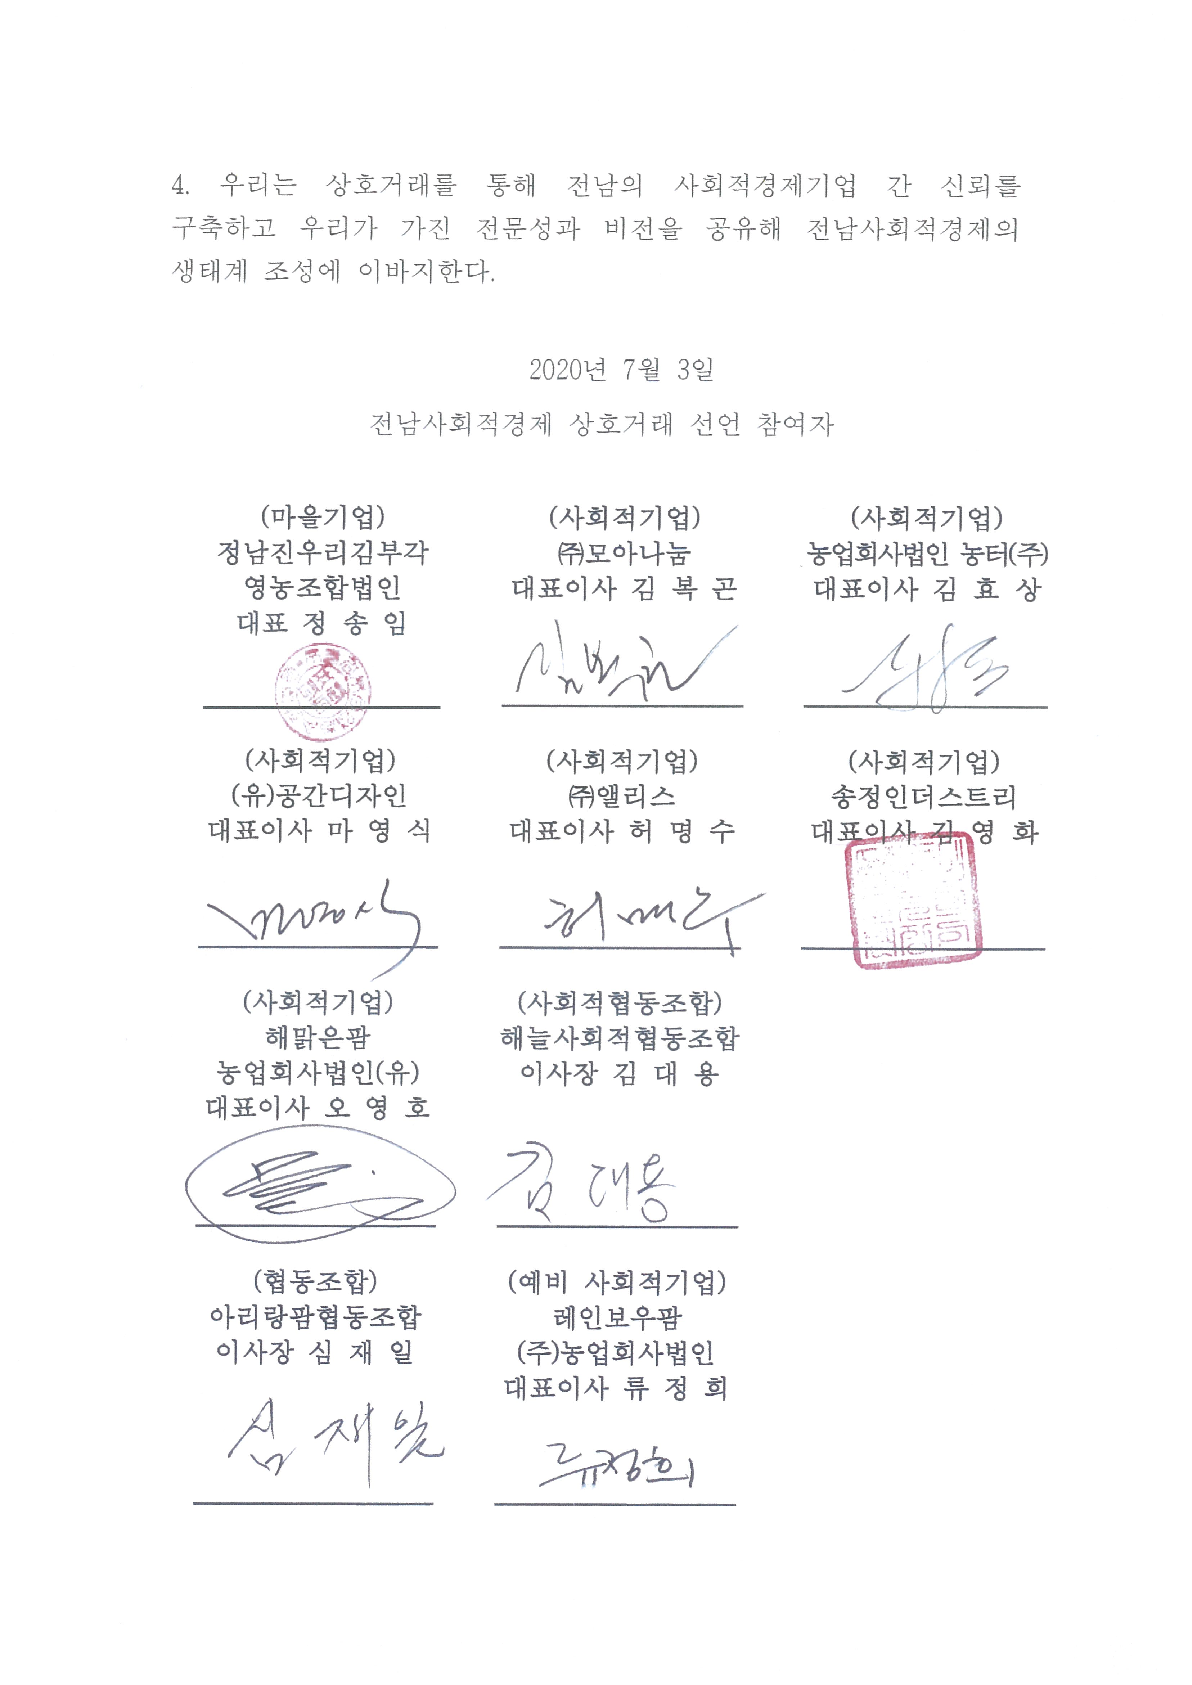 4. 우리는 상호거래를 통해 전남의 사회적경제기업 간 신뢰를
구축하고 우리가 가진 전문성과 비전을 공유해 전남사회적경제의
생태계 조성에 이바지한다.
2020년 7월 3일
전남사회적경제 상호거래 선언 참여자
(마을기업)
정남진우리김부각
영농조합법인
대표 정 송 임
(사회적기업)
㈜모아나눔
대표이사 김 복 곤
김복곤
(사회적기업)
농업회사법인 농터(주)
대표이사 김 효 상
(사회적기업)
(유)공간디자인
대표이사 마 영 식
마영식
(사회적기업)
㈜앨리스
대표이사 허 명 수
허명수
(사회적기업)
송정인더스트리
대표이사 김 영 화
(사회적기업)
해맑은팜
농업회사법인(유)
대표이사 오 영 호
(사회적협동조합)
해늘사회적협동조합
이사장 김 대 용
김 대용
(협동조합)
아리랑팜협동조합
이사장 심 재 일
심 재 일
(예비 사회적기업)
레인보우팜
(주)농업회사법인
대표이사 류 정 희
류정희